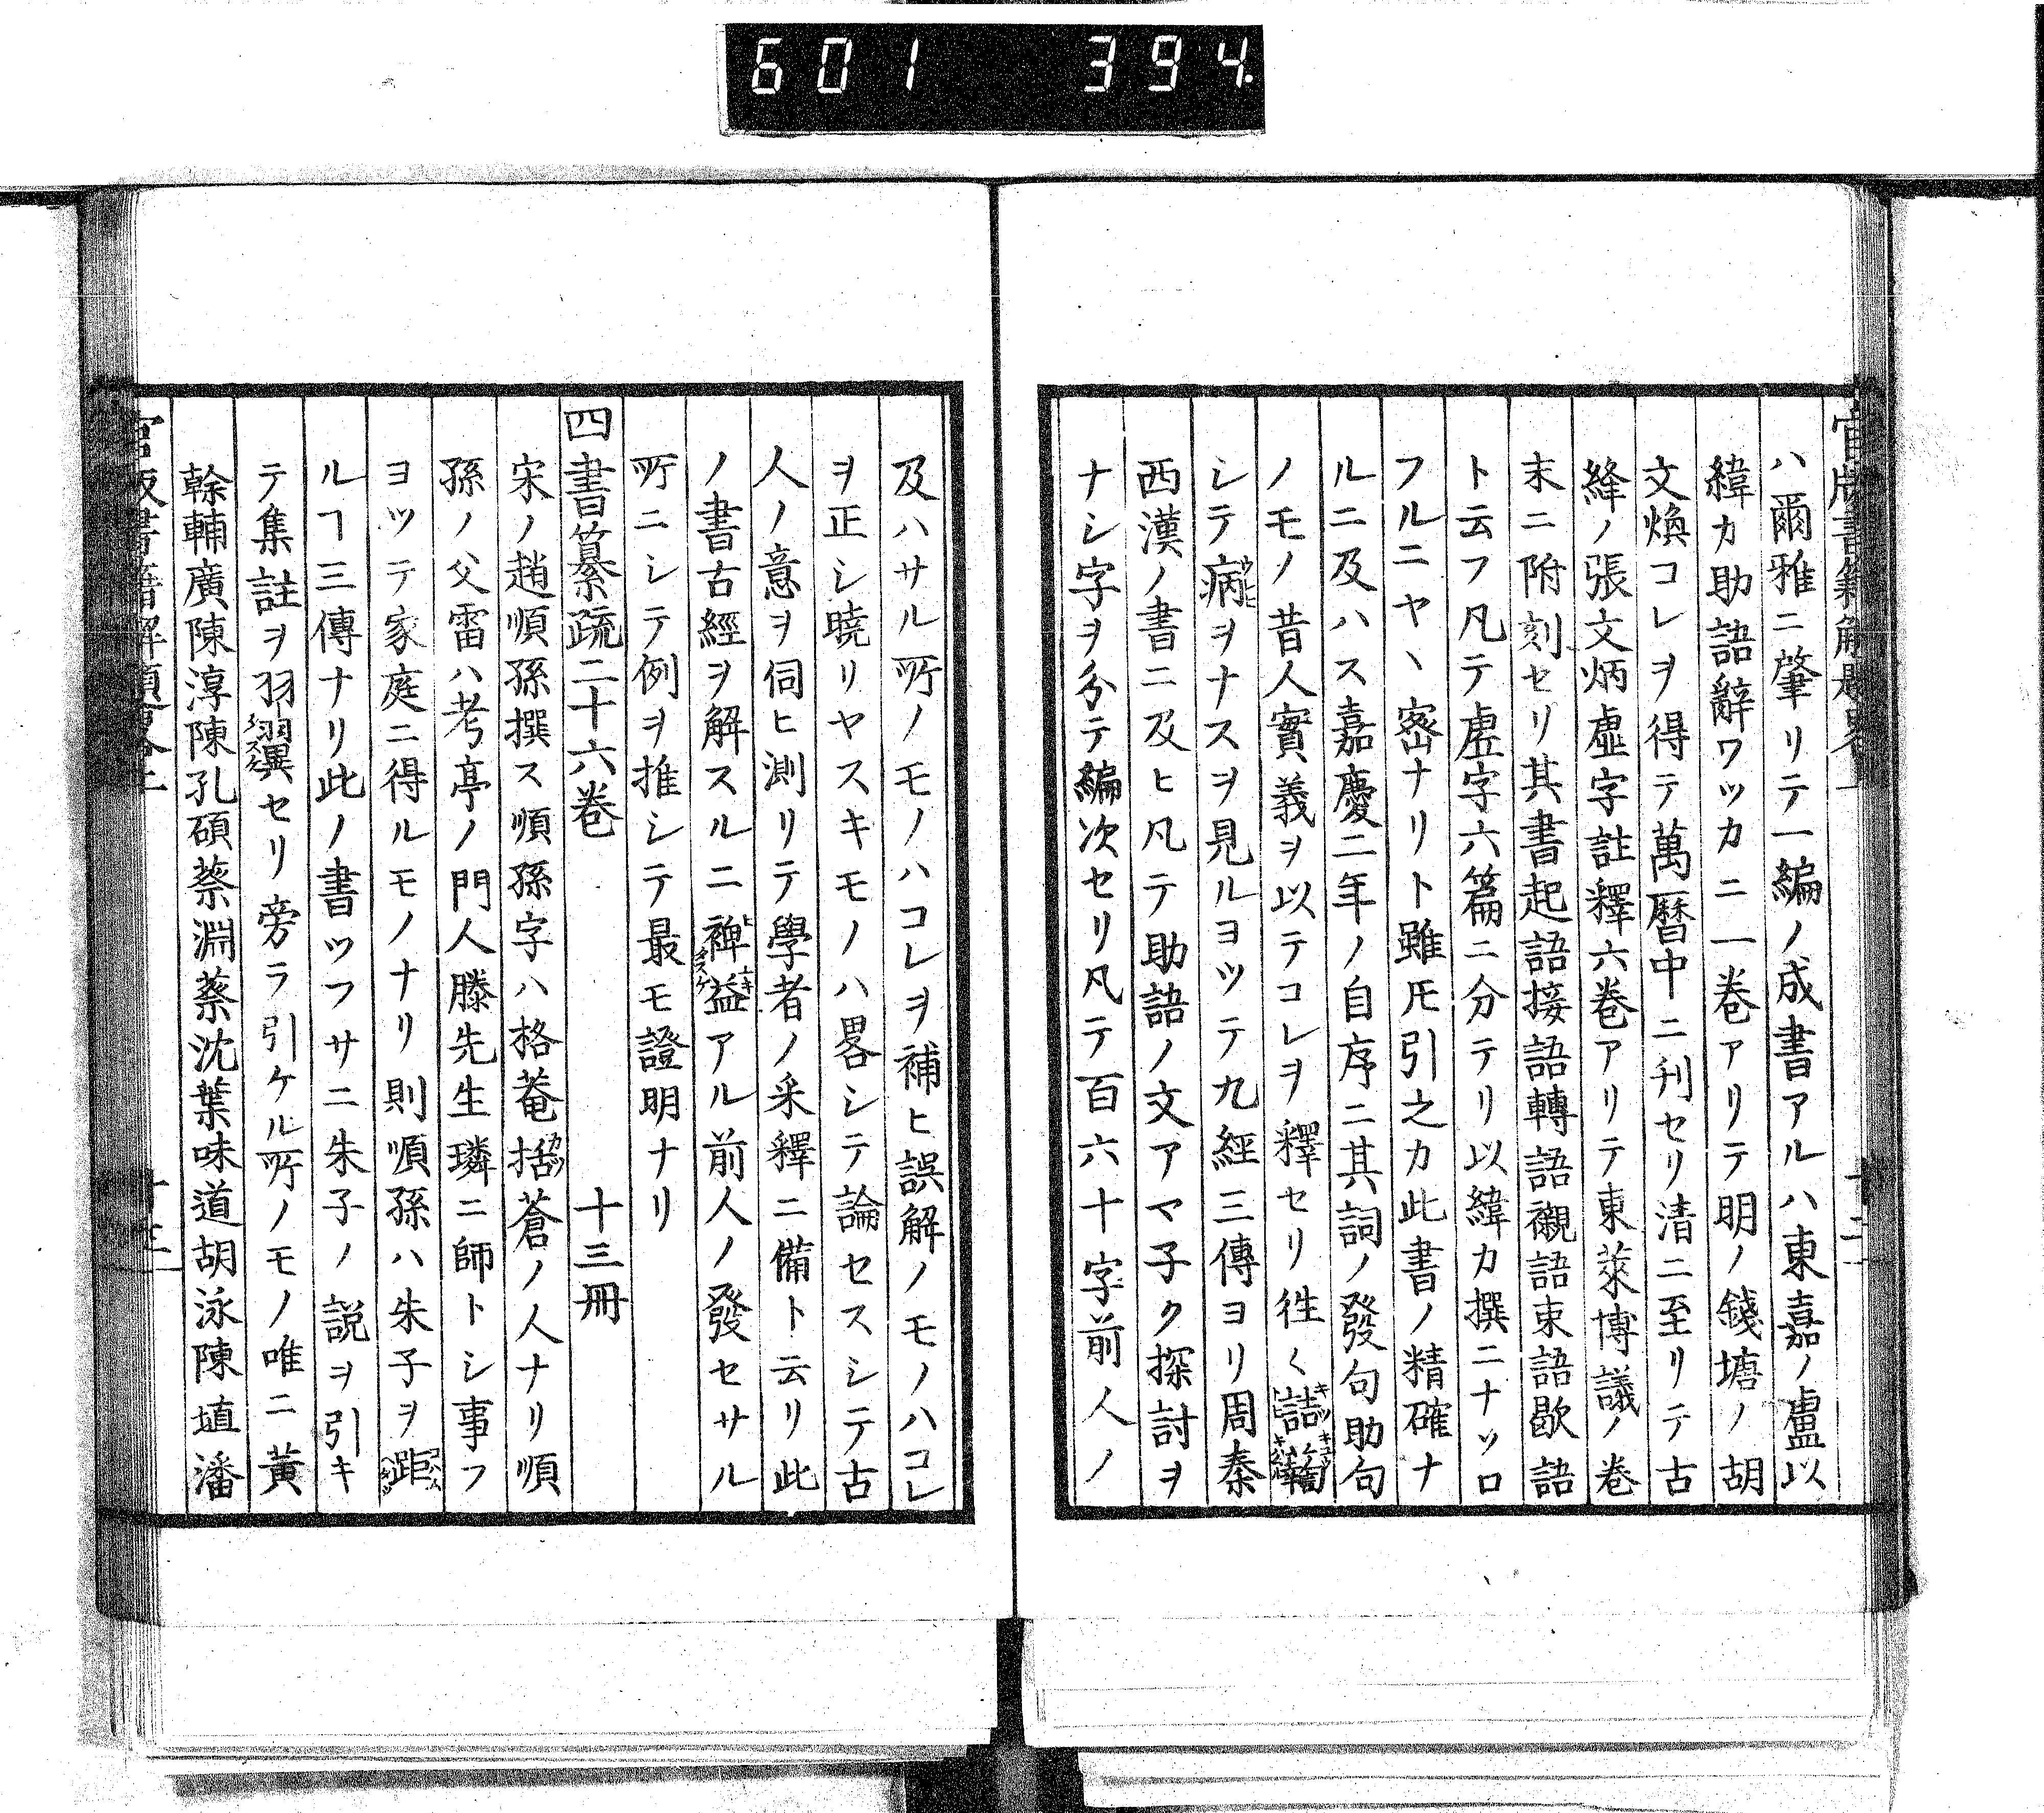 601 394
官版書籍解題畧上
十二
ハ爾雅ニ肇リテ一編ノ成書アルハ東嘉ノ盧以
緯カ助語辭ワツカニ一巻アリテ明ノ錢塘ノ胡
文煥コレヲ得テ萬暦中ニ刋セリ清ニ至リテ古
絳ノ張文炳虚字註釋六巻アリテ東萊博議ノ巻
末ニ附刻セリ其書起語接語轉語襯語束語歇語
ト云フ凡テ虚字六篇ニ分テリ以緯カ撰ニナツロ
フルニヤヽ宻ナリト雖𪜈引之カ此書ノ精確ナ
ルニ及ハス嘉慶二年ノ自序ニ其詞ノ發句助句
ノモノ昔人實義ヲ以テコレヲ釋セリ徃〱詰䩱
シテ病ヲナスヲ見ルヨツテ九經三傳ヨリ周秦
西漢ノ書ニ及ヒ凡テ助語ノ文アマ子ク探討ヲ
ナシ字ヲ分テ編次セリ凡テ百六十字前人ノ
及ハサル所ノモノハコレヲ補ヒ誤解ノモノハコレ
ヲ正シ曉リヤスキモノハ畧シテ論セスシテ古
人ノ意ヲ伺ヒ測リテ學者ノ采釋ニ備ト云リ此
ノ書古經ヲ解スルニ裨益アル前人ノ發セサル
所ニシテ例ヲ推シテ最モ證明ナリ
四書纂疏二十六巻 十三冊
宋ノ趙順孫撰ス順孫字ハ格菴括蒼ノ人ナリ順
孫ノ父雷ハ考亭ノ門人滕先生璘ニ師トシ事フ
ヨツテ家庭ニ得ルモノナリ則順孫ハ朱子ヲ距
ルヿ三傳ナリ此ノ書ツフサニ朱子ノ説ヲ引キ
テ集註ヲ羽翼セリ旁ラ引ケル所ノモノ唯ニ黄
榦輔廣陳淳陳孔碩蔡淵蔡沈葉味道胡泳陳埴潘
官版書籍解題畧上
十三